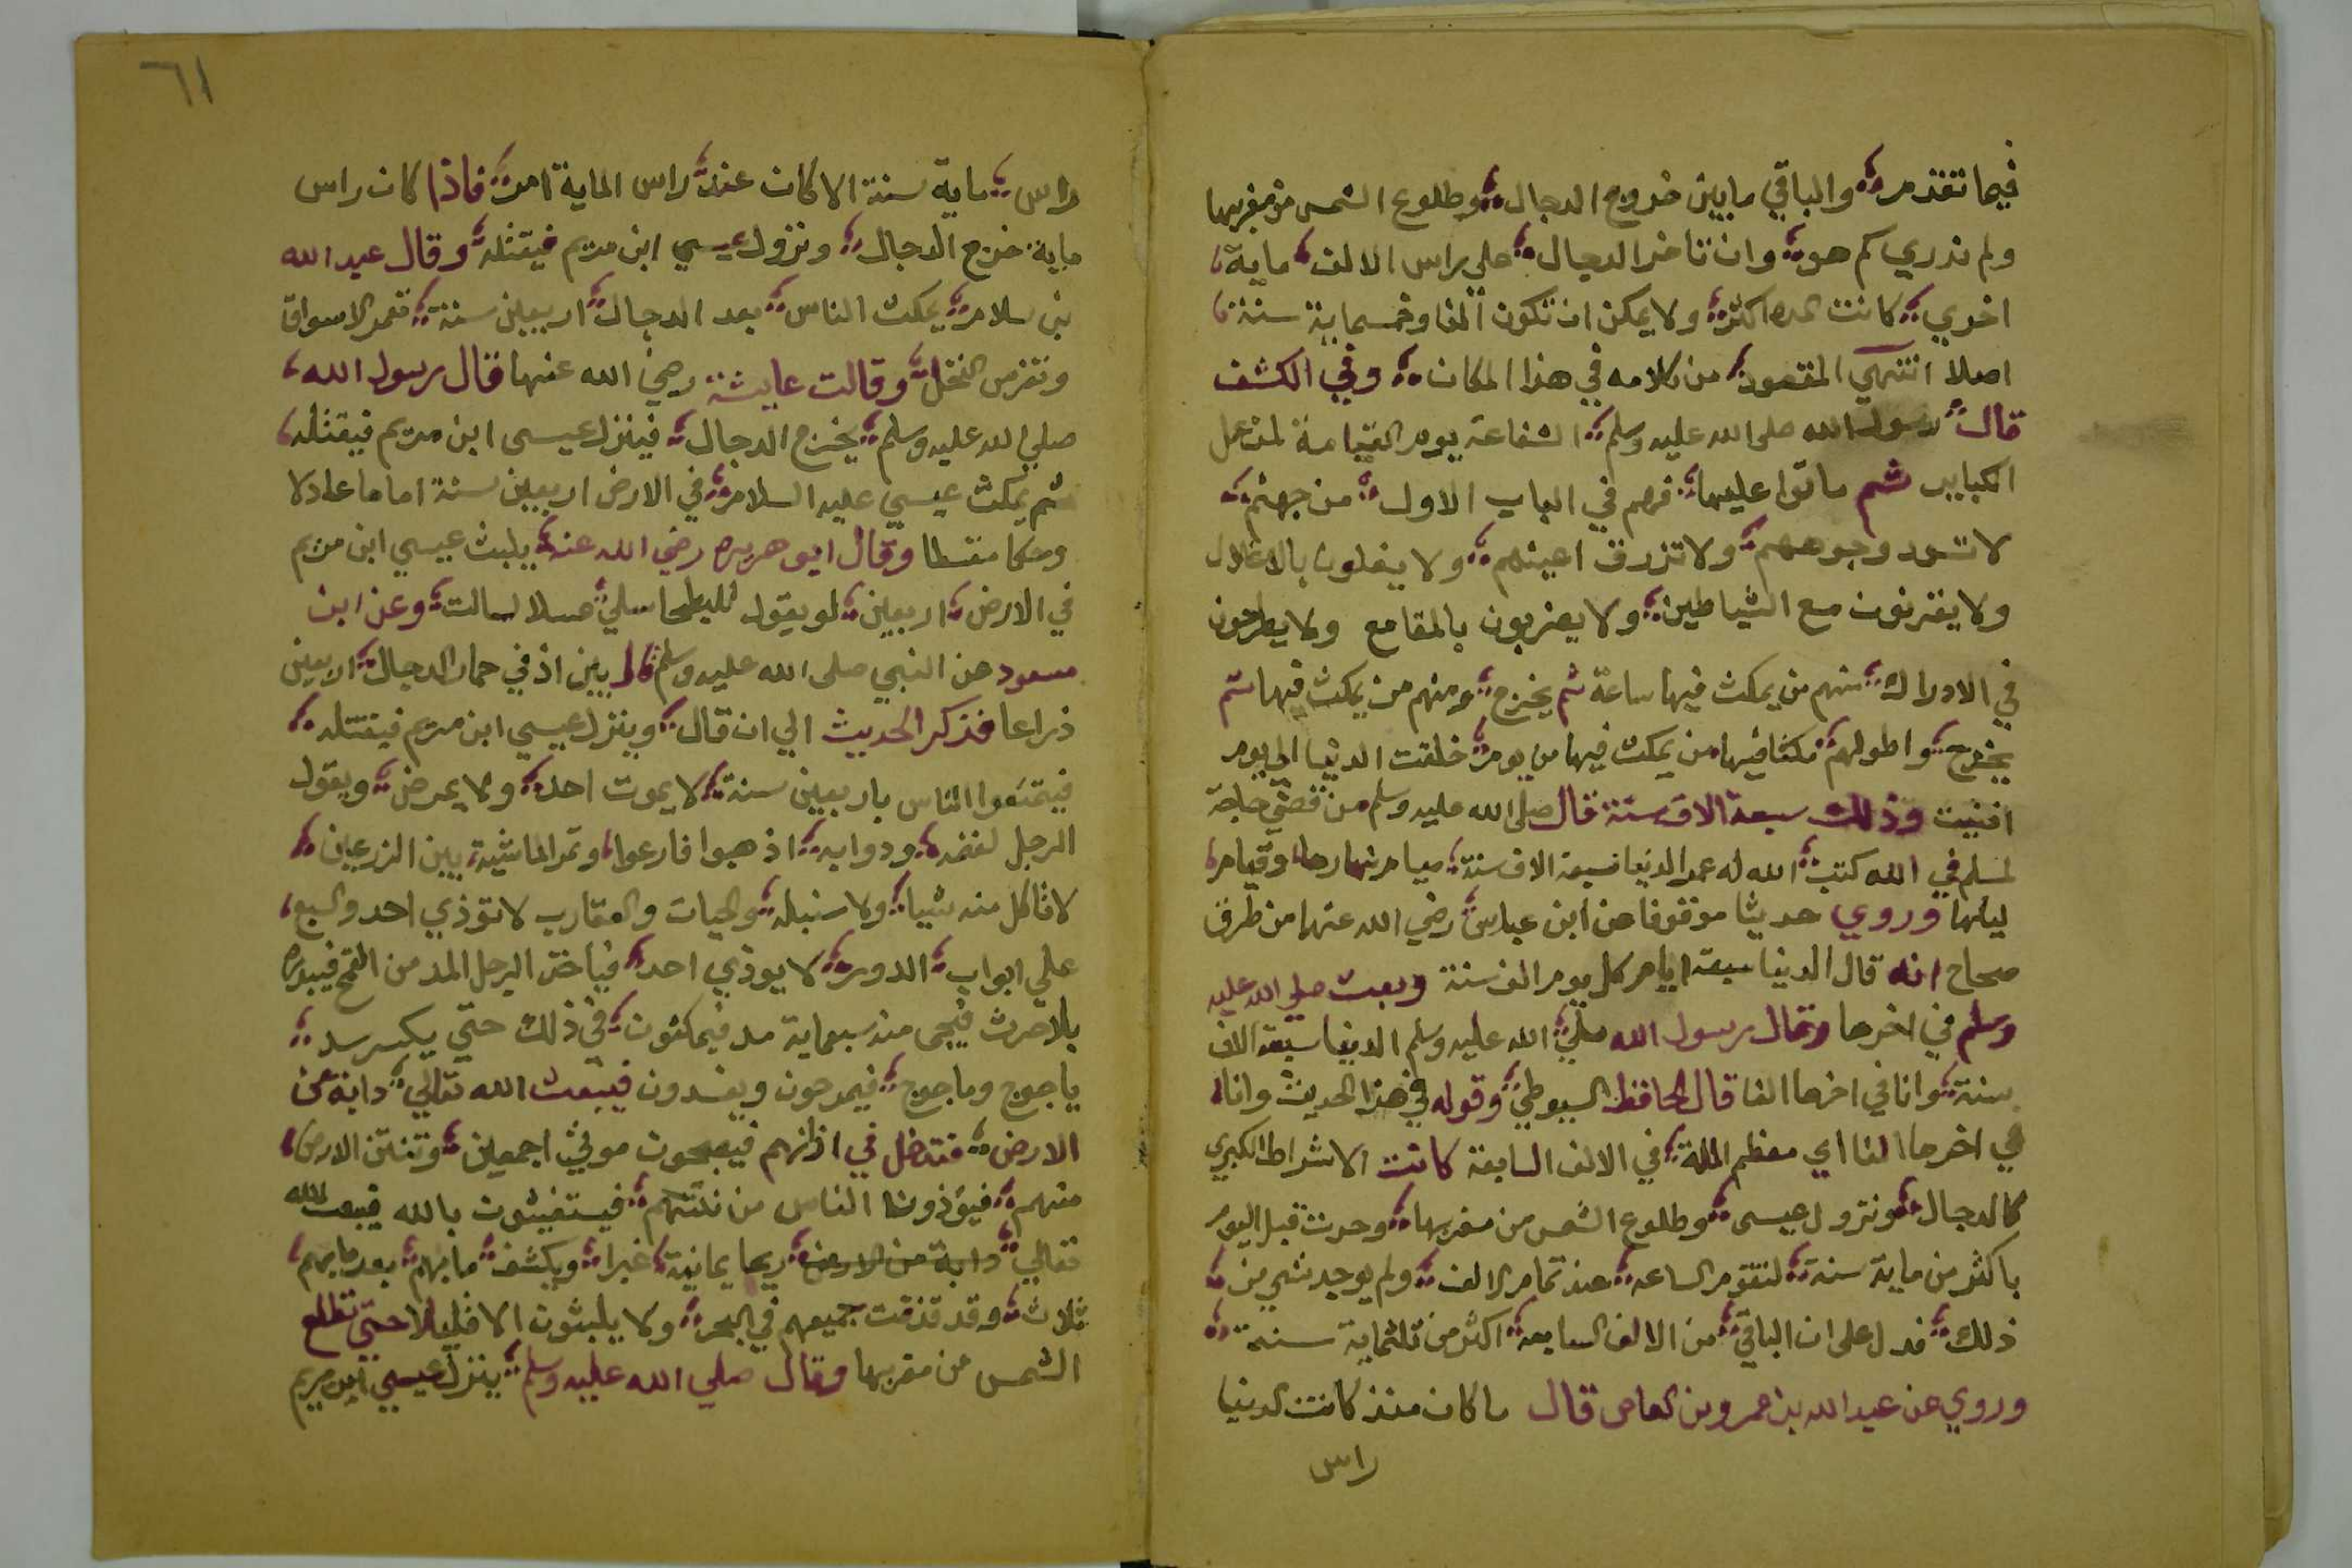 فيما تقدم والباقي مابين خروج الدجال وطلوع الشمس من مغربها
ولم ندري كم هو وان تاخر الدجال علي راس الالف ماية
اخري كانت المده اكثر ولا يمكن ان تكون الفا وخمسماية سنة
اصلا انتهي المقصود من كلامه في هذا المكان وفي الكشف
قال رسول الله صلى الله عليه وسلم الشفاعة يوم القيامة لمن عمل
الكباير ثم ماتوا عليها فهم في الباب الاول من جهنم
لا تسود وجوههم ولا تزرق اعينهم ولا يغلون بالاغلال
ولا يقرنون مع الشياطين ولا يضربون بالمقامع ولا يطرحون
في الادراك منهم من يمكث فيها ساعة ثم يخرج ومنهم من يمكث فيها ثم
يخرج واطولهم مكثا فيها من يمكث فيها من يوم خلقت الدنيا الي يوم
افنيت وذلك سبعة الاف سنة قال صلى الله عليه وسلم من قضي حاجة
لمسلم في الله كتب الله له عمر الدنيا سبعة الاف سنة صيام نهارها وقيام
ليلها وروي حديثا موقوفا عن ابن عباس رضي الله عنهما من طرق
صحاح انه قال الدنيا سبعة ايام كل يوم الف سنة وبعث صلي الله عليه
وسلم في اخرها وقال رسول الله صلي الله عليه وسلم الدنيا سبعة الاف
سنة وانا في اخرها الفا قال الحافظ السيوطي وقوله في هذا الحديث وانا
في اخرها الفا اي معظم الملة في الالف السابعة كانت الاشراط الكبري
كالدجال ونزول عيسى وطلوع الشمس من مغربها وحدثت قبل اليوم
باكثر من ماية سنة لتقوم الساعه عند تمام الالف ولم يوجد شي من
ذلك فدل على ان الباقي من الالف السابعة اكثر من ثلثماية سنة
وروي عن عبد الله بن عمرو بن العاص قال ما كان منذ كانت الدنيا
راس
٦١
راس ماية سنة الا كان عند راس الماية امر فاذا كان راس
ماية خرج الدجال ونزول عيسي ابن مريم فيقتله وقال عبد الله
بن سلام يمكث الناس بعد الدجال اربعين سنة تعمر الاسواق
وتغرس النخل وقالت عايشة رضي الله عنها قال رسول الله
صلي الله عليه وسلم يخرج الدجال فينزل عيسى ابن مريم فيقتله
ثم يمكث عيسي عليه السلام في الارض اربعين سنة اماما عادلا
وحكما مقسطا وقال ابو هريره رضي الله عنه يلبث عيسي ابن مريم
في الارض اربعين لو يقول للبطحا سلي عسلا لسالت وعن ابن
مسعود عن النبي صلى الله عليه وسلم قال بين اذني حمار الدجال اربعين
ذراعا فذكر الحديث الي ان قال وينزل عيسي ابن مريم فيقتله
فيتمتعوا الناس باربعين سنة لا يموت احد ولا يمرض ويقول
الرجل لغنمه ودوابه اذهبوا فارعوا وتمر الماشية بين الزرعين
لا تاكل منه شيا ولا سنبله والحيات والعقارب لا توذي احد والسبع
علي ابواب الدور لا يوذي احد فياخذ الرجل المد من القمح فيبدره
بلا حرث فيجي منه سبعماية مد فيمكثون في ذلك حتي يكسر سد
ياجوج وماجوج فيمرحون ويفسدون فيبعث الله تعالي دابة من
الارض فتدخل في اذانهم فيصبحون موتى اجمعين وتنتن الارض
منهم فيؤذون الناس من نتنهم فيستغيثون بالله فيبعث الله
تعالي دابة من الارض ريحا يمانية غبرا ويكشف ما بهم بعد
ثلاث وقد قذفت جميعهم في البحر ولا يلبثون الا قليلا حتي تطلع
الشمس من مغربها وقال صلي الله عليه وسلم ينزل عيسي ابن مريم